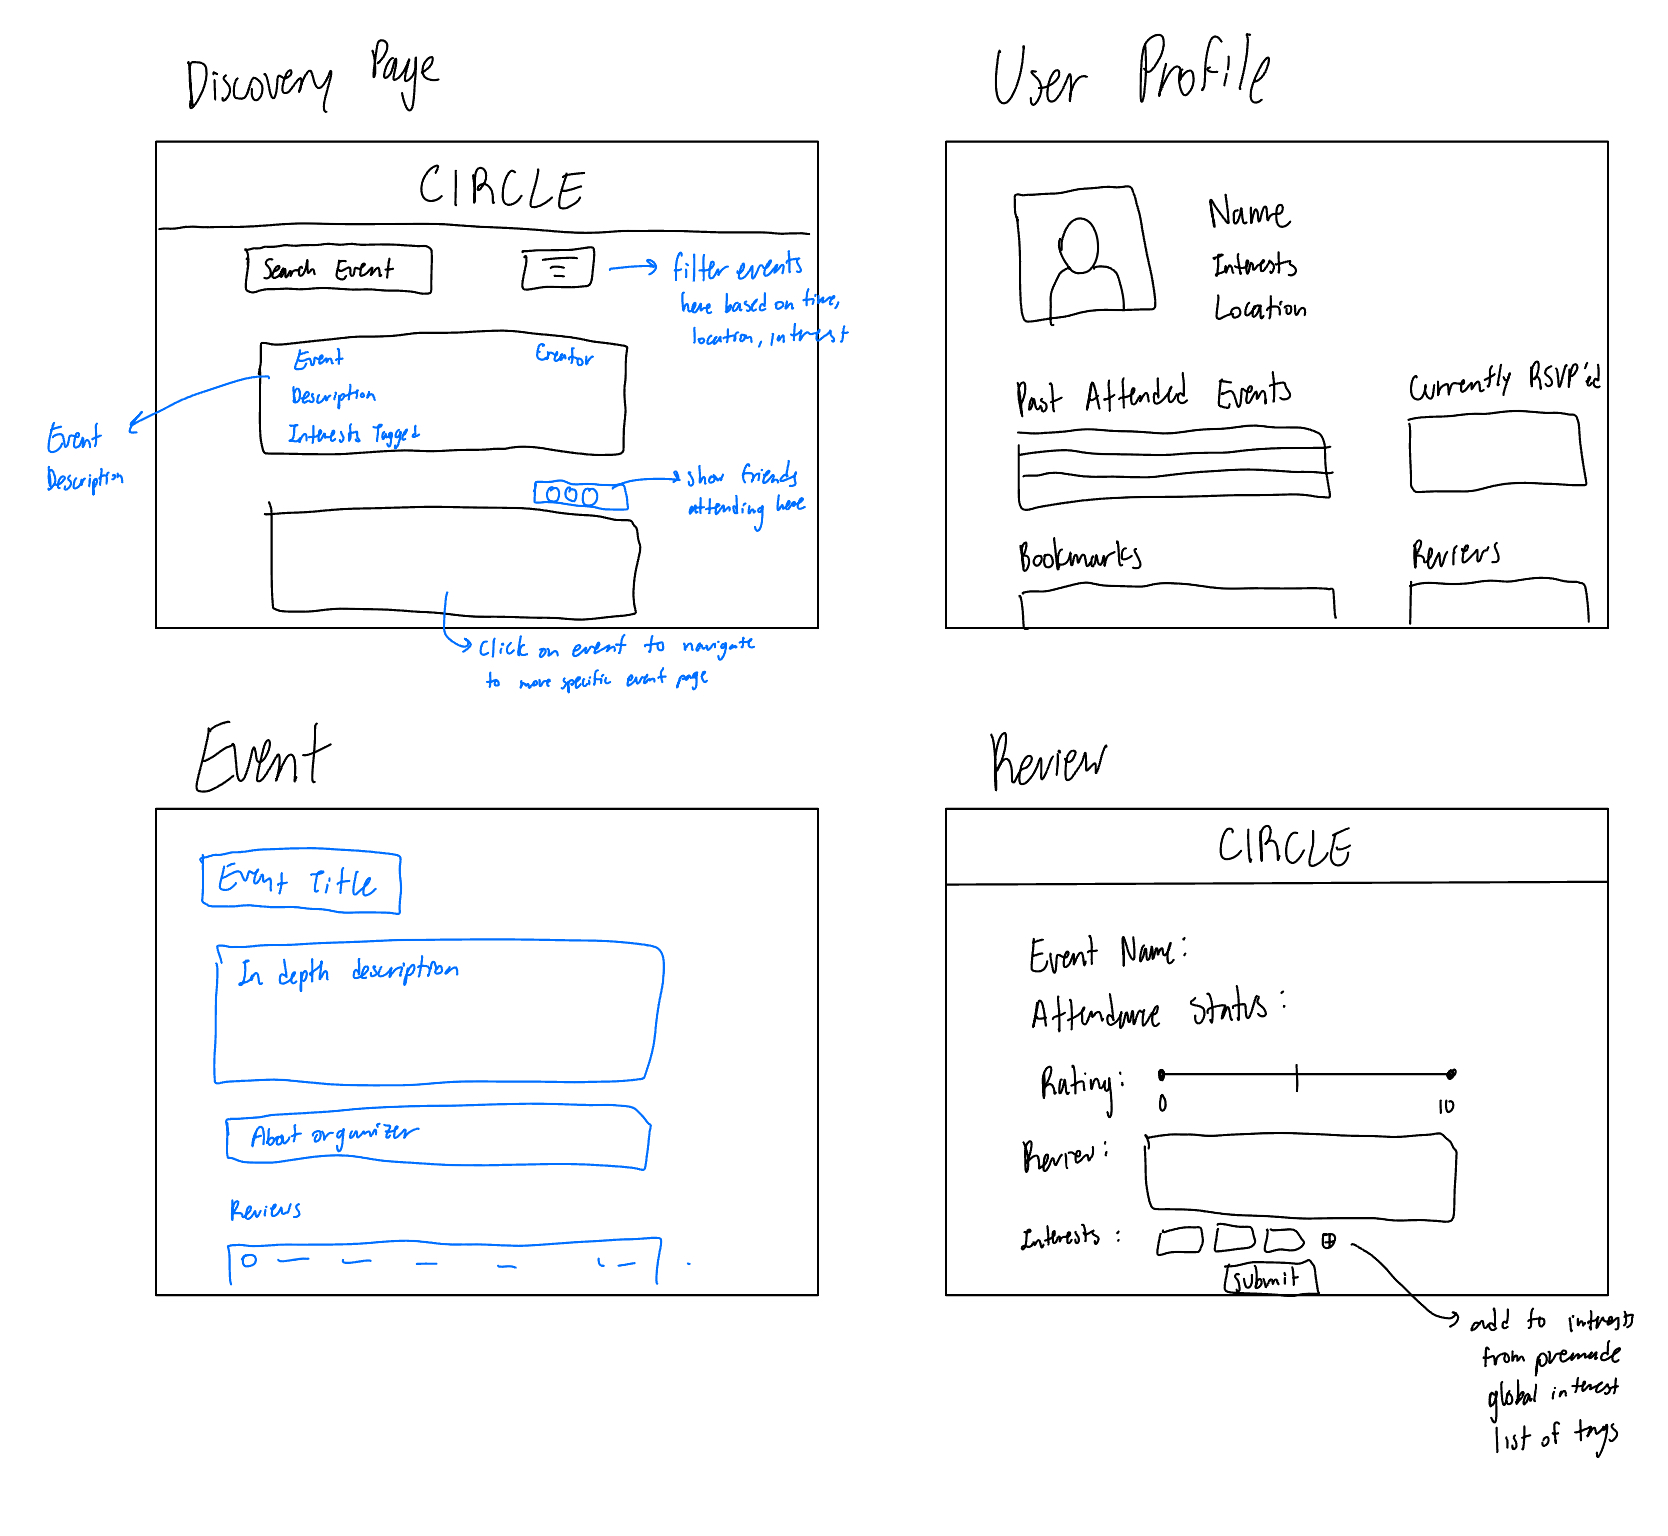 Discovery Page
CIRCLE
Search Event
filter events
here based on time,
location, intrest
Event
Creator
Description
Interests Tagged
Event
Description
show friends
attending here
Click on event to navigate
to more specific event page
User Profile
Name
Interests
Location
Past Attended Events
Currently RSVP'ed
Bookmarks
Reviews
Event
Event Title
In depth description
About organizer
Reviews
Review
CIRCLE
Event Name:
Attendance Status:
Rating:
0
10
Review:
Interests:
submit
add to intrests
from premade
global interest
list of tags